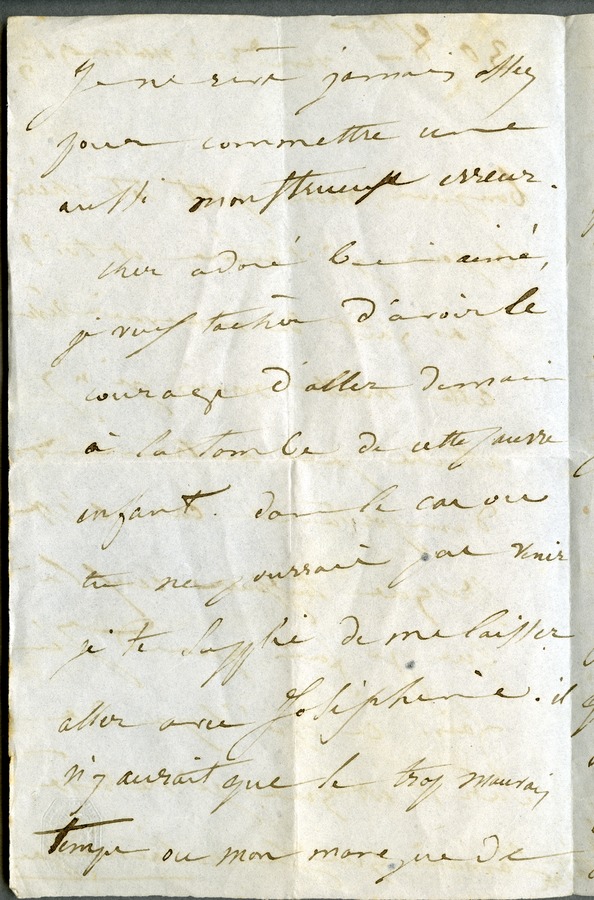 Je ne serai jamais assez
pour commettre une
aussi monstrueuse erreur.
cher adoré bien aimé,
je vais tacher d'avoir le
courage d'aller demain
à la tombe de cette pauvre
enfant. dans le cas ou
tu ne pourrais pas venir
je te supplie de me laisser
aller avec Joséphine. il
n'y aurait que le trop mauvais
temps ou mon manque de